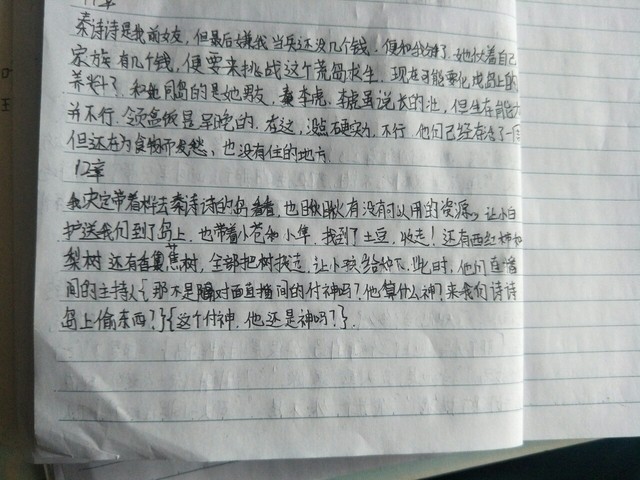 11章
秦诗诗是我前女友，但最后嫌我当兵还没几个钱，便和我分了。她仗着自己
家族有几个钱，便要来挑战这个荒岛求生，现在可能要化成岛上的
养料了。和她同岛的是她男友，李虎，李虎虽说长的壮，但生存能力
并不行，领盒饭是早晚的，在这，没点硬实力，不行，他们已经存活了一
但还在为食物而发愁，也没有住的地方
12章
我决定带着 去秦诗诗的岛看看，也瞅瞅有没有可以用的资源，让小白
护送我们到了岛上，也带着小苍和小隼，找到了土豆，收走！还有西红柿和
梨树还有香蕉树，全部把树拔走，让小 给 ，此时，他们直播
间的主持人{那不是隔对面直播间的付神吗？他算什么神？来我们诗诗
岛上偷东西？}{这个付神，他还是神吗？}.